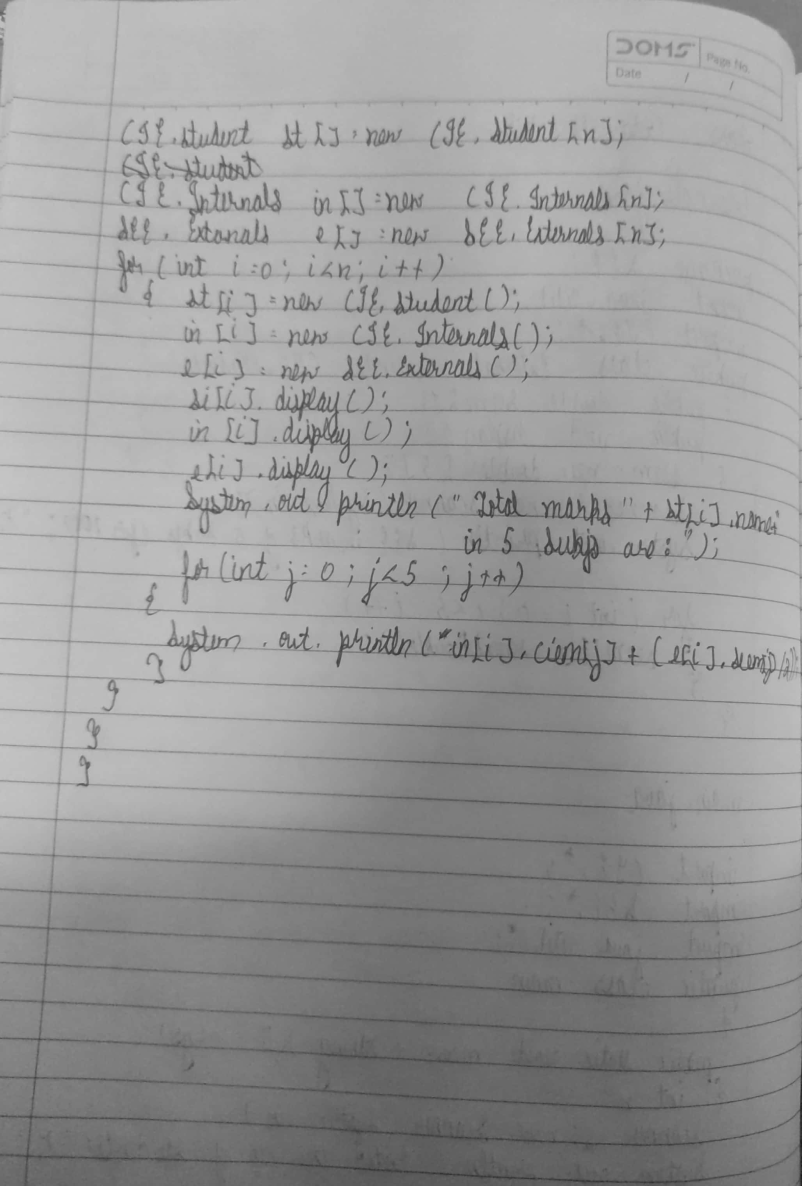 DOMS
Page No.
Date / /
CIE.Student st[] = new CIE.Student[n];
CIE.Student
CIE.Internals in[] = new CIE.Internals[n];
SEE.Extanals e[] = new SEE.Externals[n];
for (int i=0; i<n; i++)
{ st[i] = new CIE.Student();
in[i] = new CIE.Internals();
e[i] = new SEE.Externals();
si[i].display();
in[i].display();
e[i].display();
System.out.println("Total marks" + st[i].name+
in 5 subjs are:");
for(int j=0; j<5; j++)
{
System.out.println("in[i].ciem[j] + (e[i].seem[j])/2);
}
}
}
}